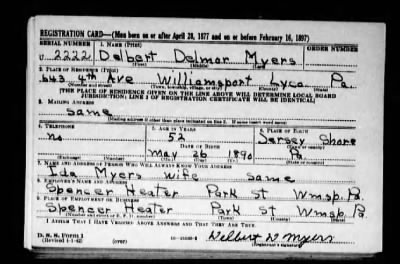 REGISTRATION CARD—(Men born on or after April 28, 1877 and on or before February 16, 1897)
SERIAL NUMBER 1. NAME (Print) ORDER NUMBER
U 2222 Delbert Delmar Myers
(First) (Middle) (Last)
2. PLACE OF RESIDENCE (Print)
643 4th Ave Williamsport Lyco. Pa.
(Number and street) (Town, township, village, or city) (County) (State)
[THE PLACE OF RESIDENCE GIVEN ON THE LINE ABOVE WILL DETERMINE LOCAL BOARD
JURISDICTION; LINE 2 OF REGISTRATION CERTIFICATE WILL BE IDENTICAL]
3. MAILING ADDRESS
Same
[Mailing address if other than place indicated on line 2. If same insert word same]
4. TELEPHONE 5. AGE IN YEARS 6. PLACE OF BIRTH
no 52 Jersey Shore
DATE OF BIRTH (Town or county)
May 26 1890 Pa.
(Exchange) (Number) (Mo.) (Day) (Yr.) (State or country)
7. NAME AND ADDRESS OF PERSON WHO WILL ALWAYS KNOW YOUR ADDRESS
Ida Myers wife same
8. EMPLOYER'S NAME AND ADDRESS
Spencer Heater Park St Wmsp. Pa.
9. PLACE OF EMPLOYMENT OR BUSINESS
Spencer Heater Park St Wmsp. Pa.
(Number and street or R. F. D. number) (Town) (County) (State)
I AFFIRM THAT I HAVE VERIFIED ABOVE ANSWERS AND THAT THEY ARE TRUE.
D. S. S. Form 1
(Revised 4-1-42) (over) Delbert D Myers
(Registrant's signature)